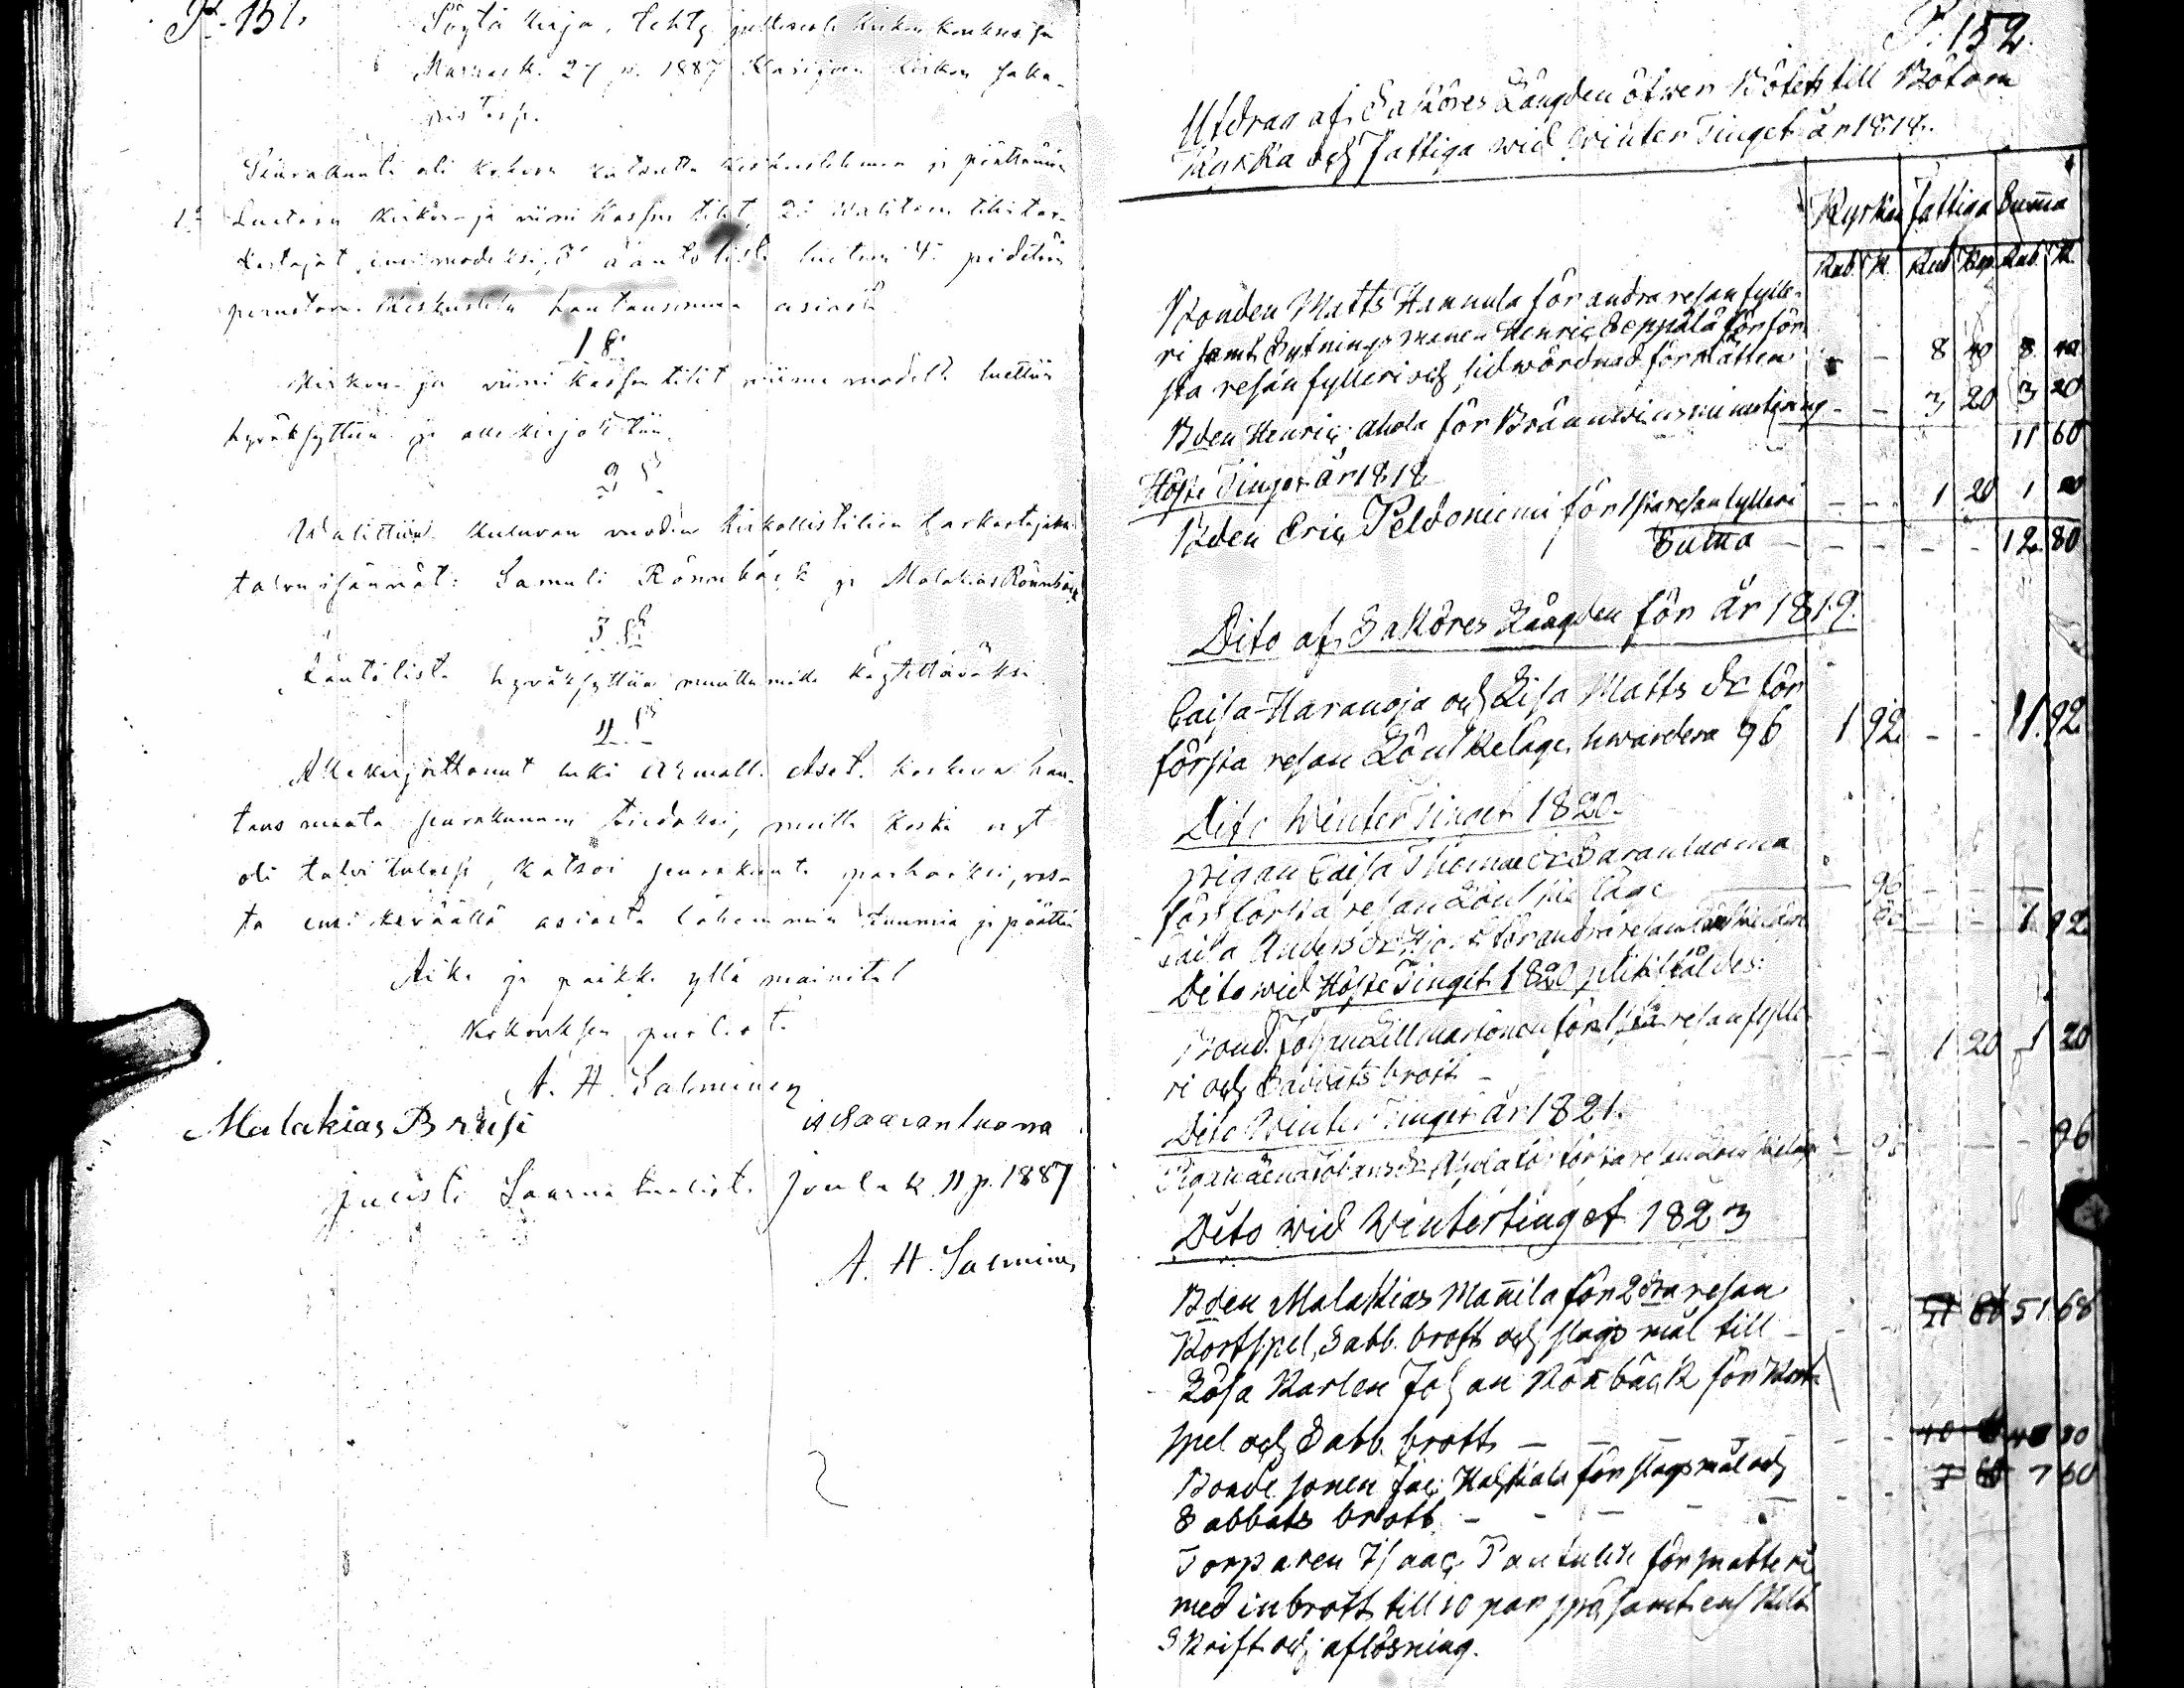 P. 151.
Pöytä kirja, tehty julkisesti kirkon kouksessa
Marrask. 27 p. 1887 Karijoen kirkon saka-
ristossa.
Seurakunta oli kokoon kutsuttu keskustelemaan ja päättämään
1o Luetaan kirkon- ja viini kassan tilit, 2o Walitaan tilintar-
kastajat ensi vuodeksi, 3o ääntölista luetaan 4o pidetään
perustava keskustelu hautausmaa asiasta
1 §.
Kirkon- ja viini kassan tilit viime vuodelta luettiin
hyväksyttiin ja allekirjoitettiin.
2 §
Walittiin kuluvan vuoden kirkollistilien tarkastajaksi
talon isännät: Samuli Rönnbäck ja Malakias Rönnbäck
3 §
Ääntölista hyväksyttiin muuttamata käytettäväksi
4 §
Allekirjoittanut luki Armoll. Aset. koskeva hau-
tausmaata seurakunnan tiedoksi, mutta koska nyt
oli talvi tulossa, katsoi seurakunta parhaaksi, vas-
ta ensi keväällä asiasta lähemmin tuumia ja päättää
Aika ja paikka yllä mainitut
Kokouksen puolesta
A. H. Salminen
Malakias Brusi
Saaranluoma
Julist. Saarnatuolista Jouluk. 11 p. 1887
A. H. Salminen
P. 152.
Utdrag af Saköres Längden öfwer Böter till Bötom
Kyrka och fattiga wid Winter Tinget år 1818.
Kyrkan fattiga Summa
Rub K. Rub Kop. Rub. K.
Bonden Matts Hannula för andra resan fylle-
ri samt Sytnings mannen Henric Seppälä för för
sta resan fylleri och lidwördnad för Rätten - - 8 40 8 40
Bden Henric Ahola för Bränwins minutering - - 3 20 3 20
11 60
Höste Tinget år 1818
Bden Eric Peldoniemi för 1sta resan fylleri - - 1 20 1 20
Summa - - - - 12. 80
Dito af Saköres Längden för år 1819.
Caisa Haranoja och Lisa Matts dr för
första resan Lönskeläge, hwardera 96 1 92 - - 1. 92
Dito Winter Tinget 1820.
pigan Caisa Thomæ dr Saranluoma
för första resan Lönske läge - 96 - -
Caisa Anders dr för andra resan - - 1 92
Dito wid Höste Tinget 1820 pliktfäldes:
Bond. Johan Lillmartonen för 1sta resan fylle-
ri och Sabbats brott - - - 1 20 1 20
Dito Winter Tinget år 1821.
Pigan Johans dr Ahola för första resan Lönskeläge - 96 - - 96
Dito wid Wintertinget 1823
Bden Malakias Mannila för 2dra resan
Kortspel, Sabb. brott och slagsmål till - - - 51 68 51. 68
Lösa Karlen Johan Rönbäck för Kort
spel och Sabb. brott - - - -
Bonde sonen Jac. Halkiala för slagsmål och
Sabbats brott - - - 7 60 7 60
Torparen Isaac Pantulin för snatteri
med inbrott till 10 par spö samt ensk
Skrift och aflösning.